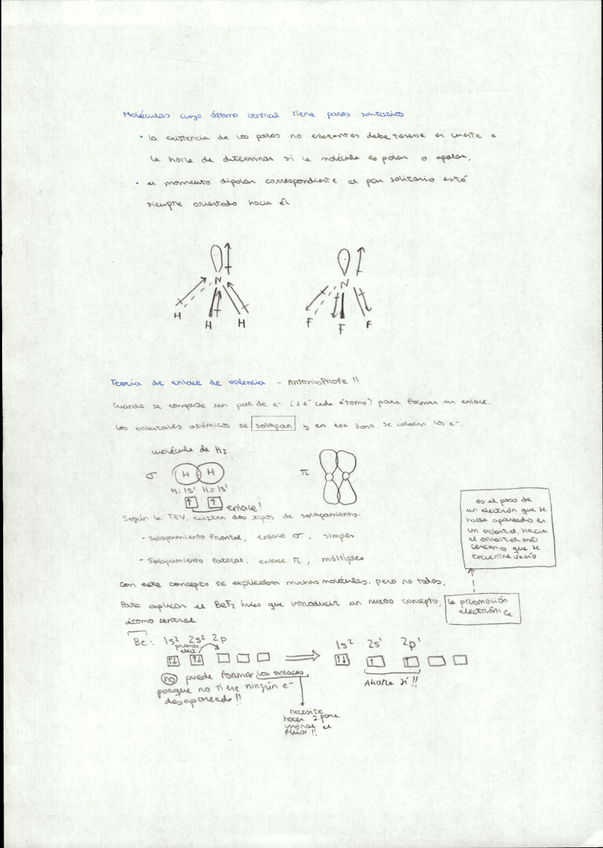 Moléculas cuyo átomo central tiene pares solitarios
• la existencia de los pares no enlazantes debe tenerse en cuenta a
la hora de determinar si la molécula es polar o apolar.
• el momento dipolar correspondiente al par solitario está
siempre orientado hacia él
N
H
H
H
N
F
F
F
Teoría de enlace de valencia - AntonioProfe !!
Cuando se comparte un par de e⁻ (1 e⁻ cada átomo) para formar un enlace.
Los orbitales atómicos se solapan y en esa zona se colocan los e⁻.
molécula de H₂
σ H H π
H: 1s¹ H = 1s¹
↑ ↑ enlace!
Según la TEV, existen dos tipos de solapamiento.
- Solapamiento frontal, enlace σ, simples
- Solapamiento lateral, enlace π, múltiples
es el paso de
un electrón que se
halla apareado en
un orbital, hacia
el orbital más
cercano que se
encuentre vacío
Con este concepto se explicaban muchas moléculas, pero no todas,
Para explicar el BeF₂ hubo que introducir un nuevo concepto, la promoción
electrón
átomo central
Be: 1s² 2s² 2p 1s² 2s¹ 2p¹
↑↓ ↑↓ ↑↓ ↑ ↑
no puede formar los enlaces
porque no tiene ningún e⁻
desapareado!!
Ahora sí!!
necesita
hacer 2 para
unirse al
flúor!!